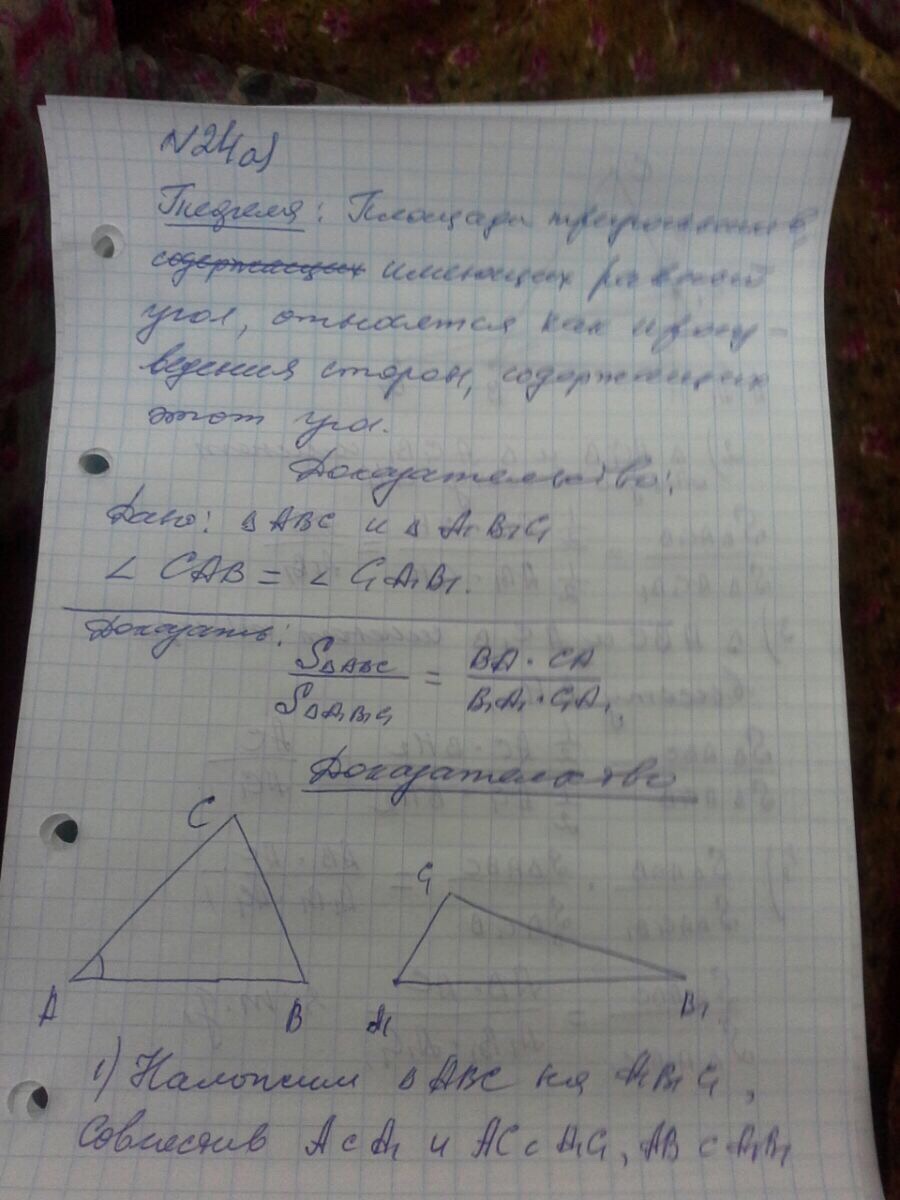 N24a)
Теорема: Площади треугольников,
содержащих имеющих равный
угол, относятся как произ-
ведения сторон, содержащих
этот угол.
Доказательство:
Дано: ΔABC и ΔA₁B₁C₁
∠CAB = ∠C₁A₁B₁.
Доказать:
SΔABC / SΔA₁B₁C₁ = BA · CA / B₁A₁ · C₁A₁
Доказательство
C
C₁
A B A₁ B₁
1) Наложим ΔABC на A₁B₁C₁,
Совместив A с A₁ и AC с A₁C₁, AB с A₁B₁